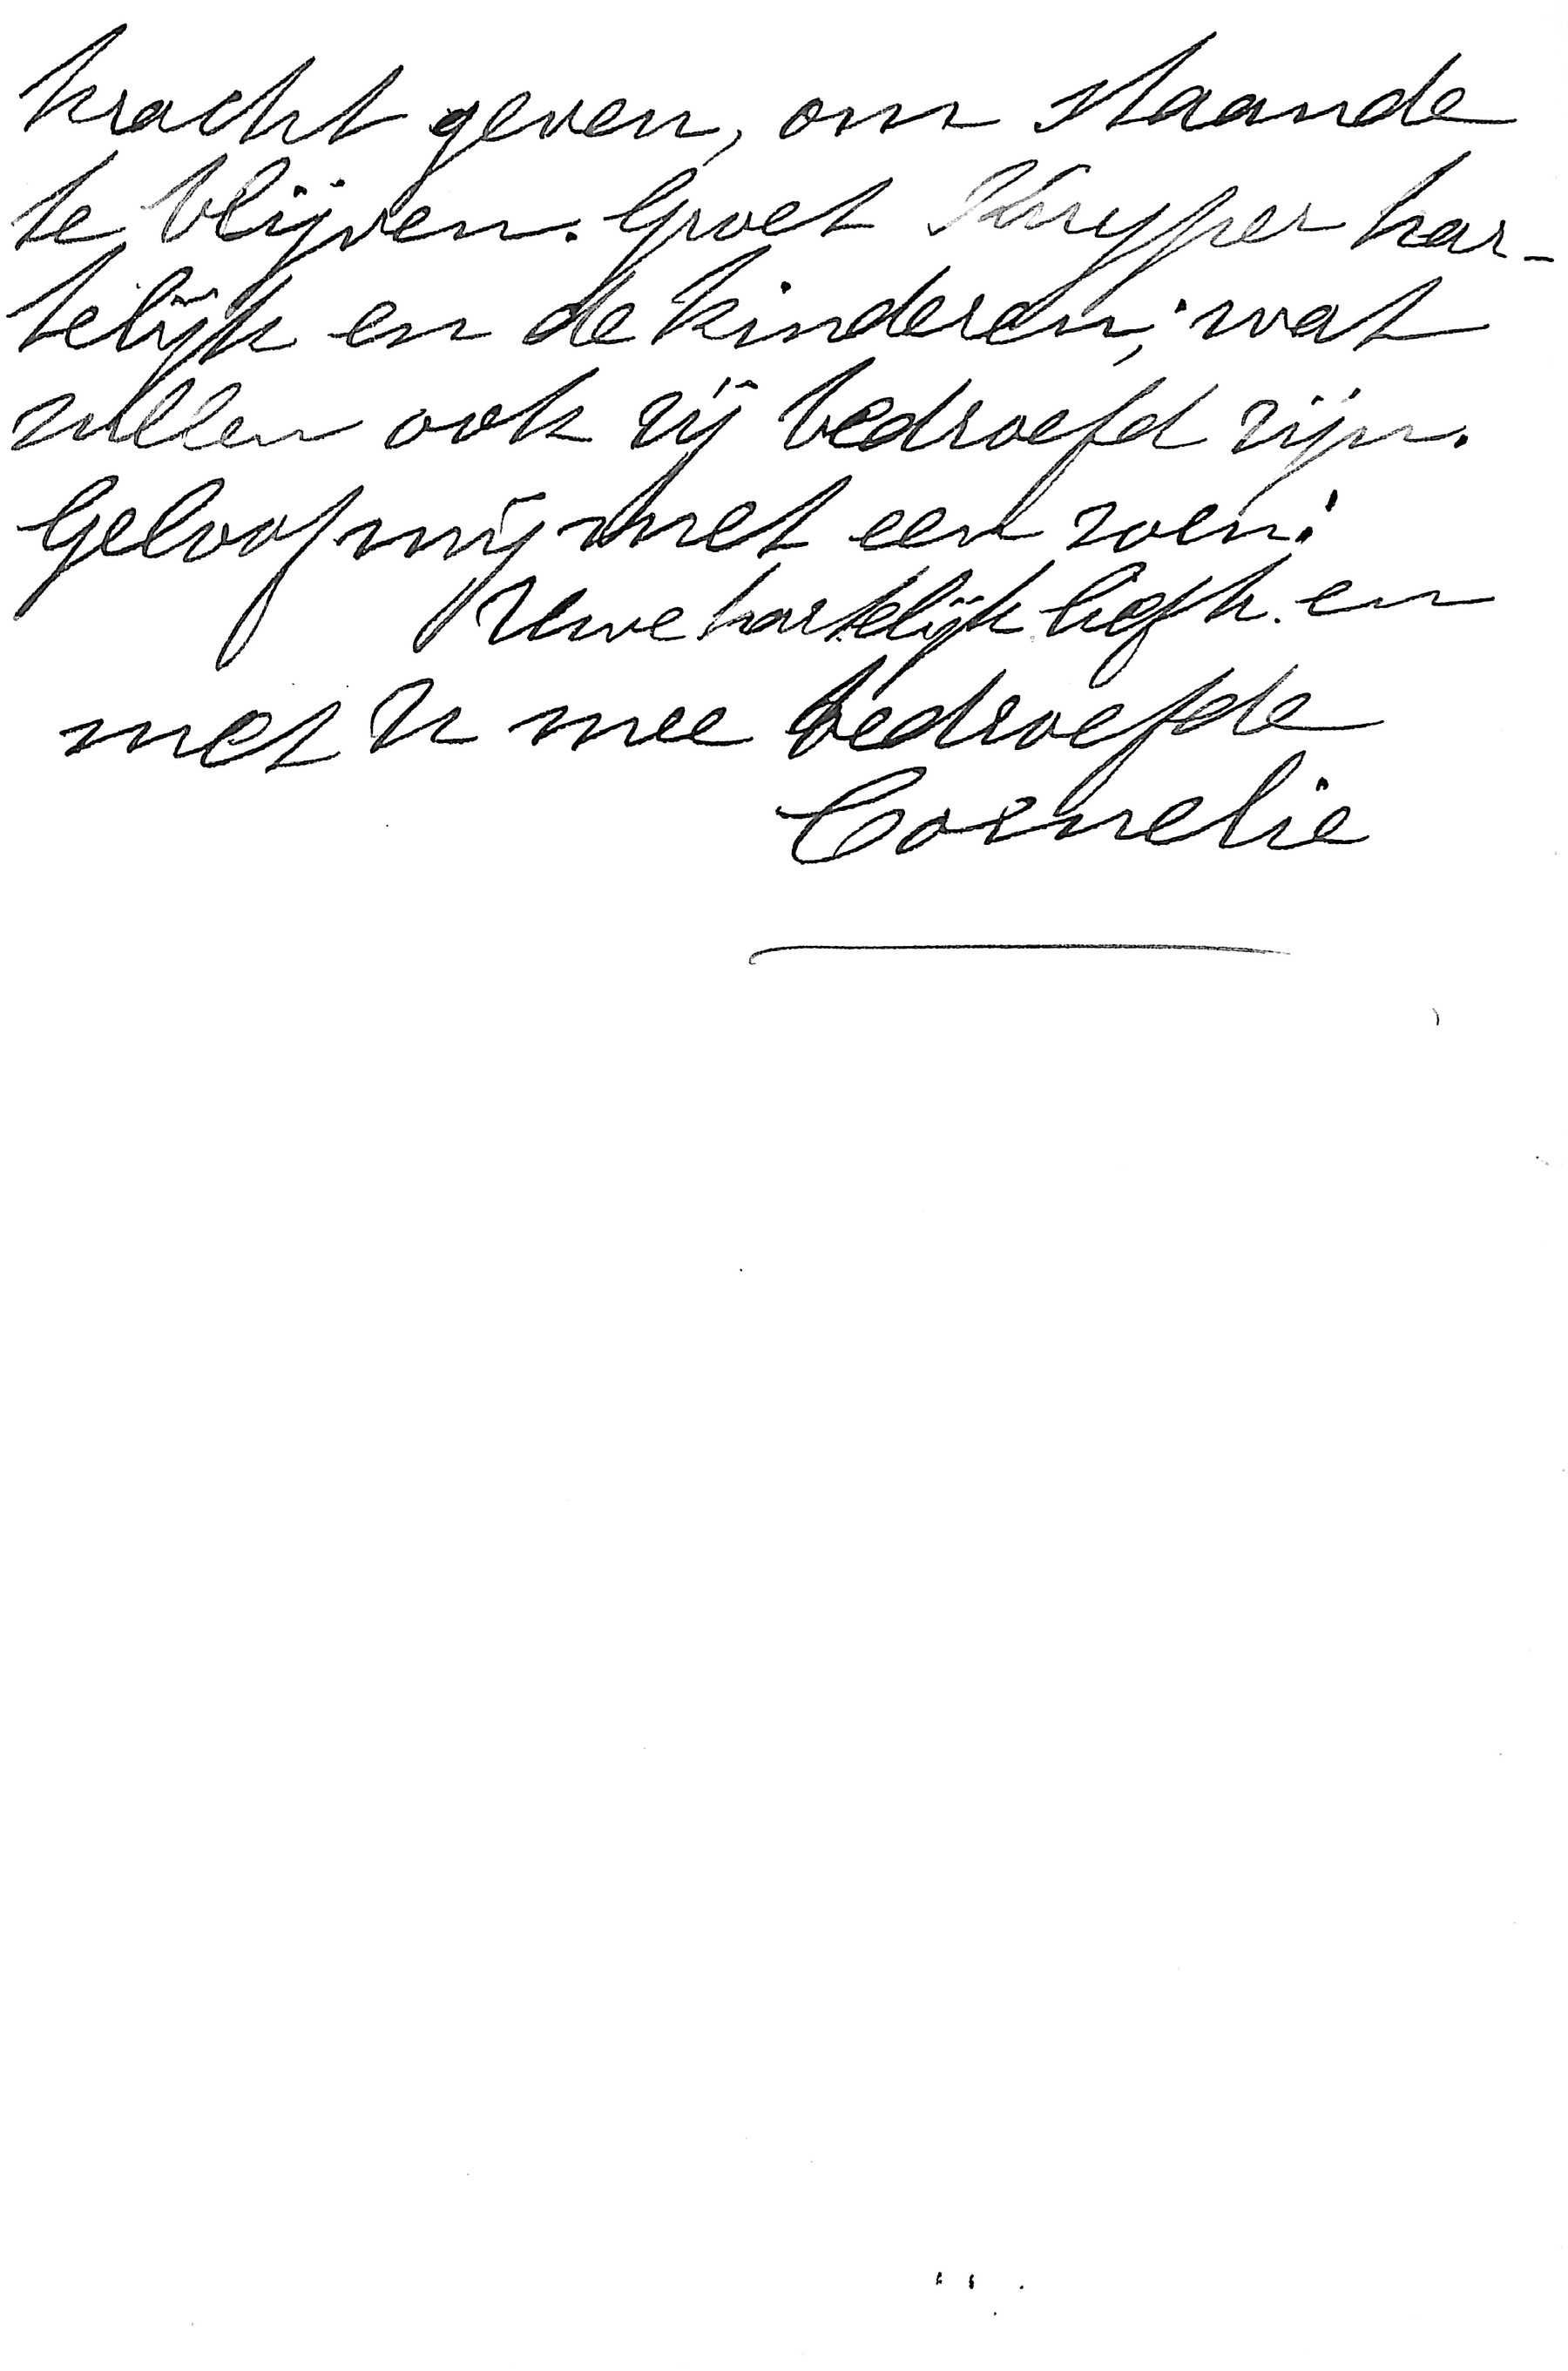 kracht geven, om staande
te blijven. Groet Kuyper har-
telijk en de kinderen; wat
zullen ook zij bedroefd zijn.
Geloof mij met een zoen:
Uwe hartelijk liefh. en
met U mee bedroefde
Cornelie